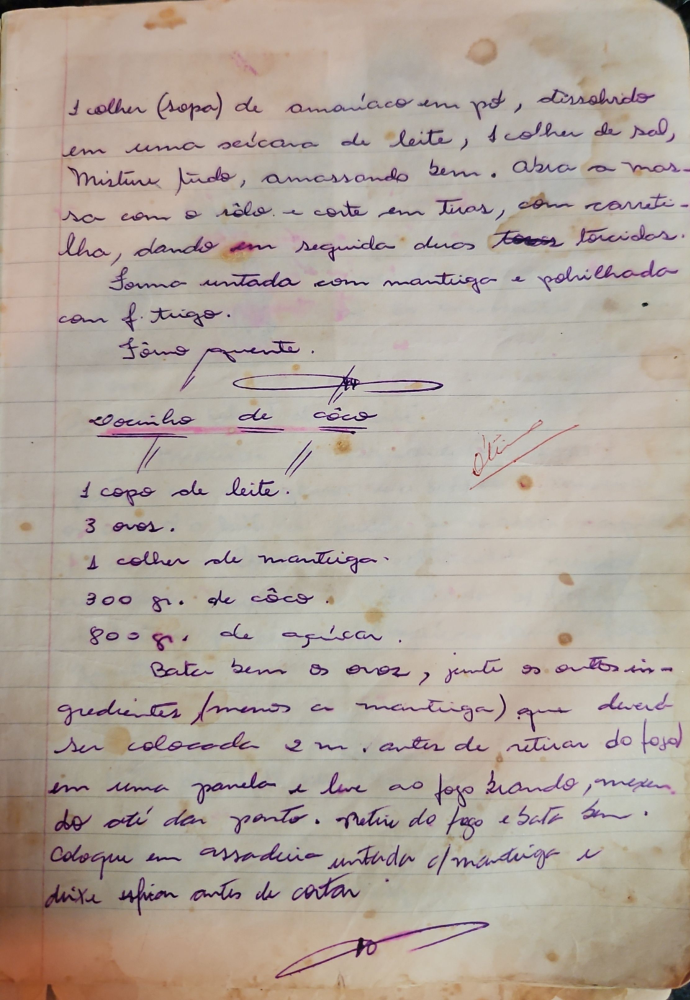 1 colher (sopa) de amoníaco em pó, dissolvido
em uma xícara de leite, 1 colher de sal,
Misture tudo, amassando bem. Abra a mas-
sa com o rôlo e corte em tiras, com carreti-
lha, dando em seguida duas torcidas.
Forma untada com manteiga e polvilhada
com f. trigo.
Fôrno quente.
Docinho de côco
Ótimo
1 copo de leite.
3 ovos.
1 colher de manteiga.
300 gr. de côco.
800 gr. de açúcar.
Bater bem os ovos, junte os outros in-
gredientes (menos a manteiga) que deverá
ser colocada 2 m. antes de retirar do fogo)
em uma panela e leve ao fogo brando, mexen
do até dar ponto. Retire do fogo e bata bem.
Coloque em assadeira untada c/ manteiga e
deixe esfriar antes de cortar.